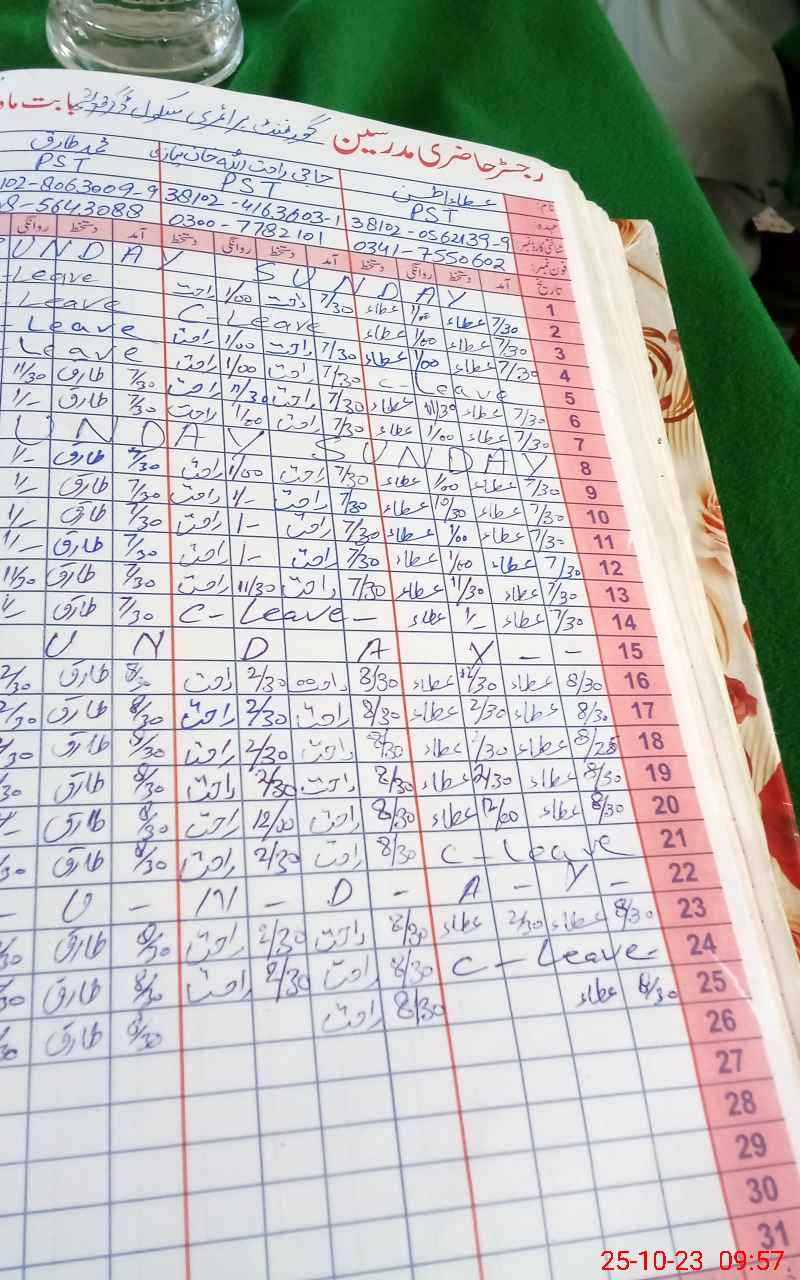 رجسٹر حاضری مدرسین گورنمنٹ پرائمری سکول بابت ماہ
نام: عطاء حاجی راحت اللہ خان نیازی محمد طارق
عہدہ: PST PST PST
شناختی کارڈ نمبر: 38102-0562139-9 38102-4163603-1 102-8063009-9
فون نمبر: 0341-7550602 0300-7782101 8-5643088
تاریخ آمد دستخط روانگی دستخط آمد دستخط روانگی دستخط آمد دستخط روانگی
1 S U N D A Y U N D A Y
2 7/30 عطاء 1/00 عطاء 7/30 راحت 1/00 راحت Leave
3 7/30 عطاء 1/00 عطاء C Leave Leave
4 7/30 عطاء 1/00 عطاء 7/30 راحت 1/00 راحت Leave
5 C-Leave 7/30 راحت 1/00 راحت Leave
6 7/30 عطاء 11/30 عطاء 7/30 راحت 11/30 راحت 7/30 طارق 11/30
7 7/30 عطاء 1/00 عطاء 7/30 راحت 1/00 راحت 7/30 طارق 1/-
8 S U N D A Y U N D A Y
9 7/30 عطاء 1/00 عطاء 7/30 راحت 1/00 راحت 7/30 طارق 1/-
10 7/30 عطاء 10/30 عطاء 7/30 راحت 1/- راحت 7/30 طارق 1/-
11 7/30 عطاء 1/00 عطاء 7/30 راحت 1- راحت 7/30 طارق 1/-
12 7/30 عطاء 1/00 عطاء 7/30 راحت 1- راحت 7/30 طارق 1/-
13 7/30 عطاء 11/30 عطاء 7/30 راحت 11/30 راحت 7/30 طارق 11/30
14 7/30 عطاء 1/- عطاء C-Leave- 7/30 طارق
15 U N D A Y - -
16 8/30 عطاء 12/30 عطاء 8/30 راحت 2/30 راحت 8/30 طارق 2/30
17 8/30 عطاء 2/30 عطاء 8/30 راحت 2/30 راحت 8/30 طارق 2/30
18 8/25 عطاء /30 عطاء 8/30 راحت 2/30 راحت 8/30 طارق /30
19 8/30 عطاء 2/30 عطاء 8/30 راحت 2/30 راحت 8/30 طارق /30
20 8/30 عطاء 12/00 عطاء 8/30 راحت 12/00 راحت 8/30 طارق
21 C-Leave 8/30 راحت 2/30 راحت 8/30 طارق /30
22 - U - N - D - A - Y -
23 8/30 عطاء 2/30 عطاء 8/30 راحت 2/30 راحت 8/30 طارق /30
24 C-Leave- 8/30 راحت 2/30 راحت 8/30 طارق /30
25 8/30 عطاء 8/30 راحت 8/30 طارق /30
26
27
28
29
30
31
25-10-23 09:57